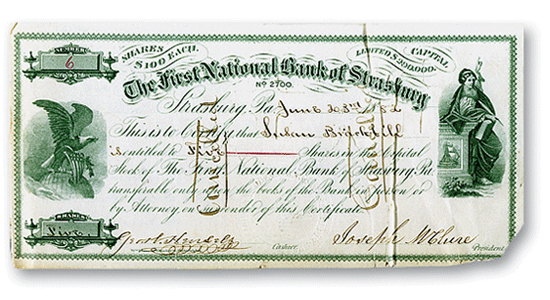 NUMBER
6
SHARES $100 EACH.
CAPITAL LIMITED $200,000.
The First National Bank of Strasburg
No 2700.
Strasburg, Pa. June 23rd 1882
This is to Certify that
is entitled to Five Shares in the Capital
Stock of The First National Bank of Strasburg Pa.
transferable only upon the books of the Bank in person or
by Attorney, on surrender of this Certificate.
SHARES
Five
Cashier. Joseph McClure President